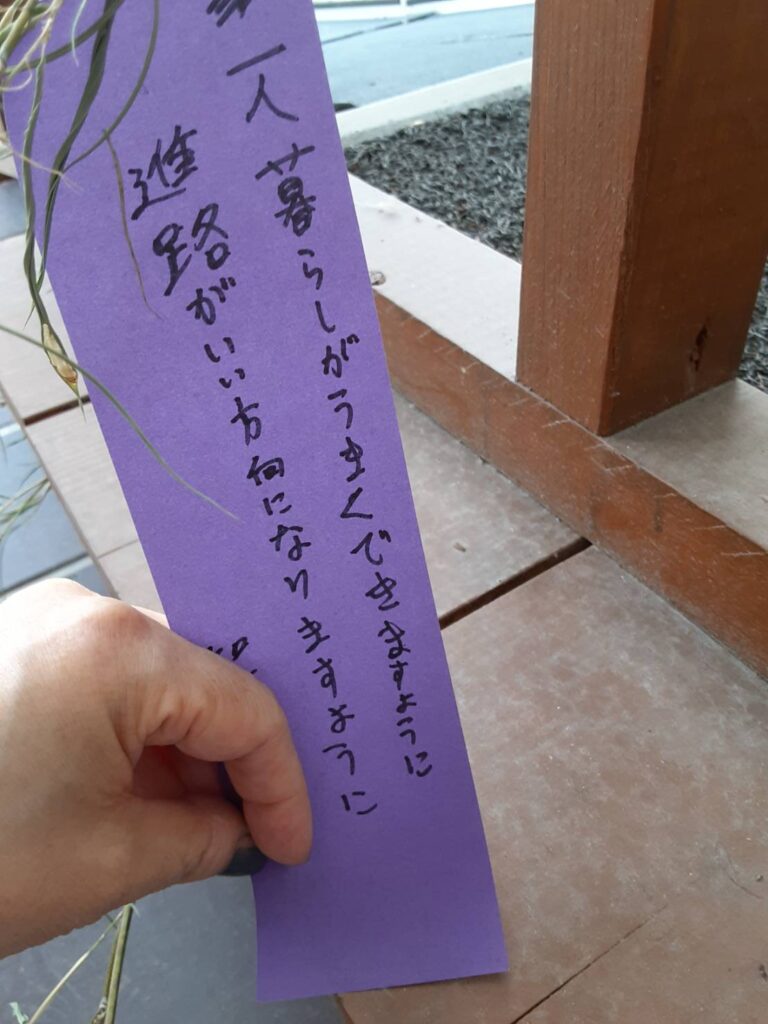 一人暮らしがうまくできますように
進路がいい方向になりますように